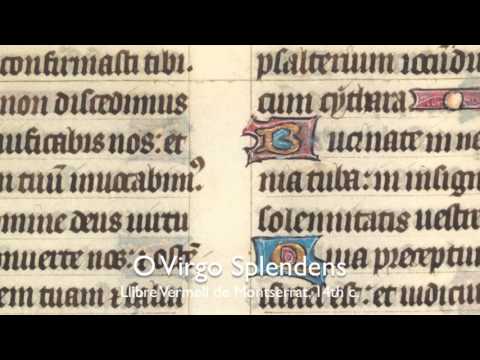 confirmasti tibi.
non discedimus
uificabis nos: et
n tuū inuocabim⁹
omine deus uirtu
nuerte nos: et
em tuam
psalterium iocūdu
cum cythara
Bucinate in ne
nia tuba: in insign
solennitatis uestre
Quia preceptu
et iudiciu
O Virgo Splendens
Llibre Vermell de Montserrat, 14th c.